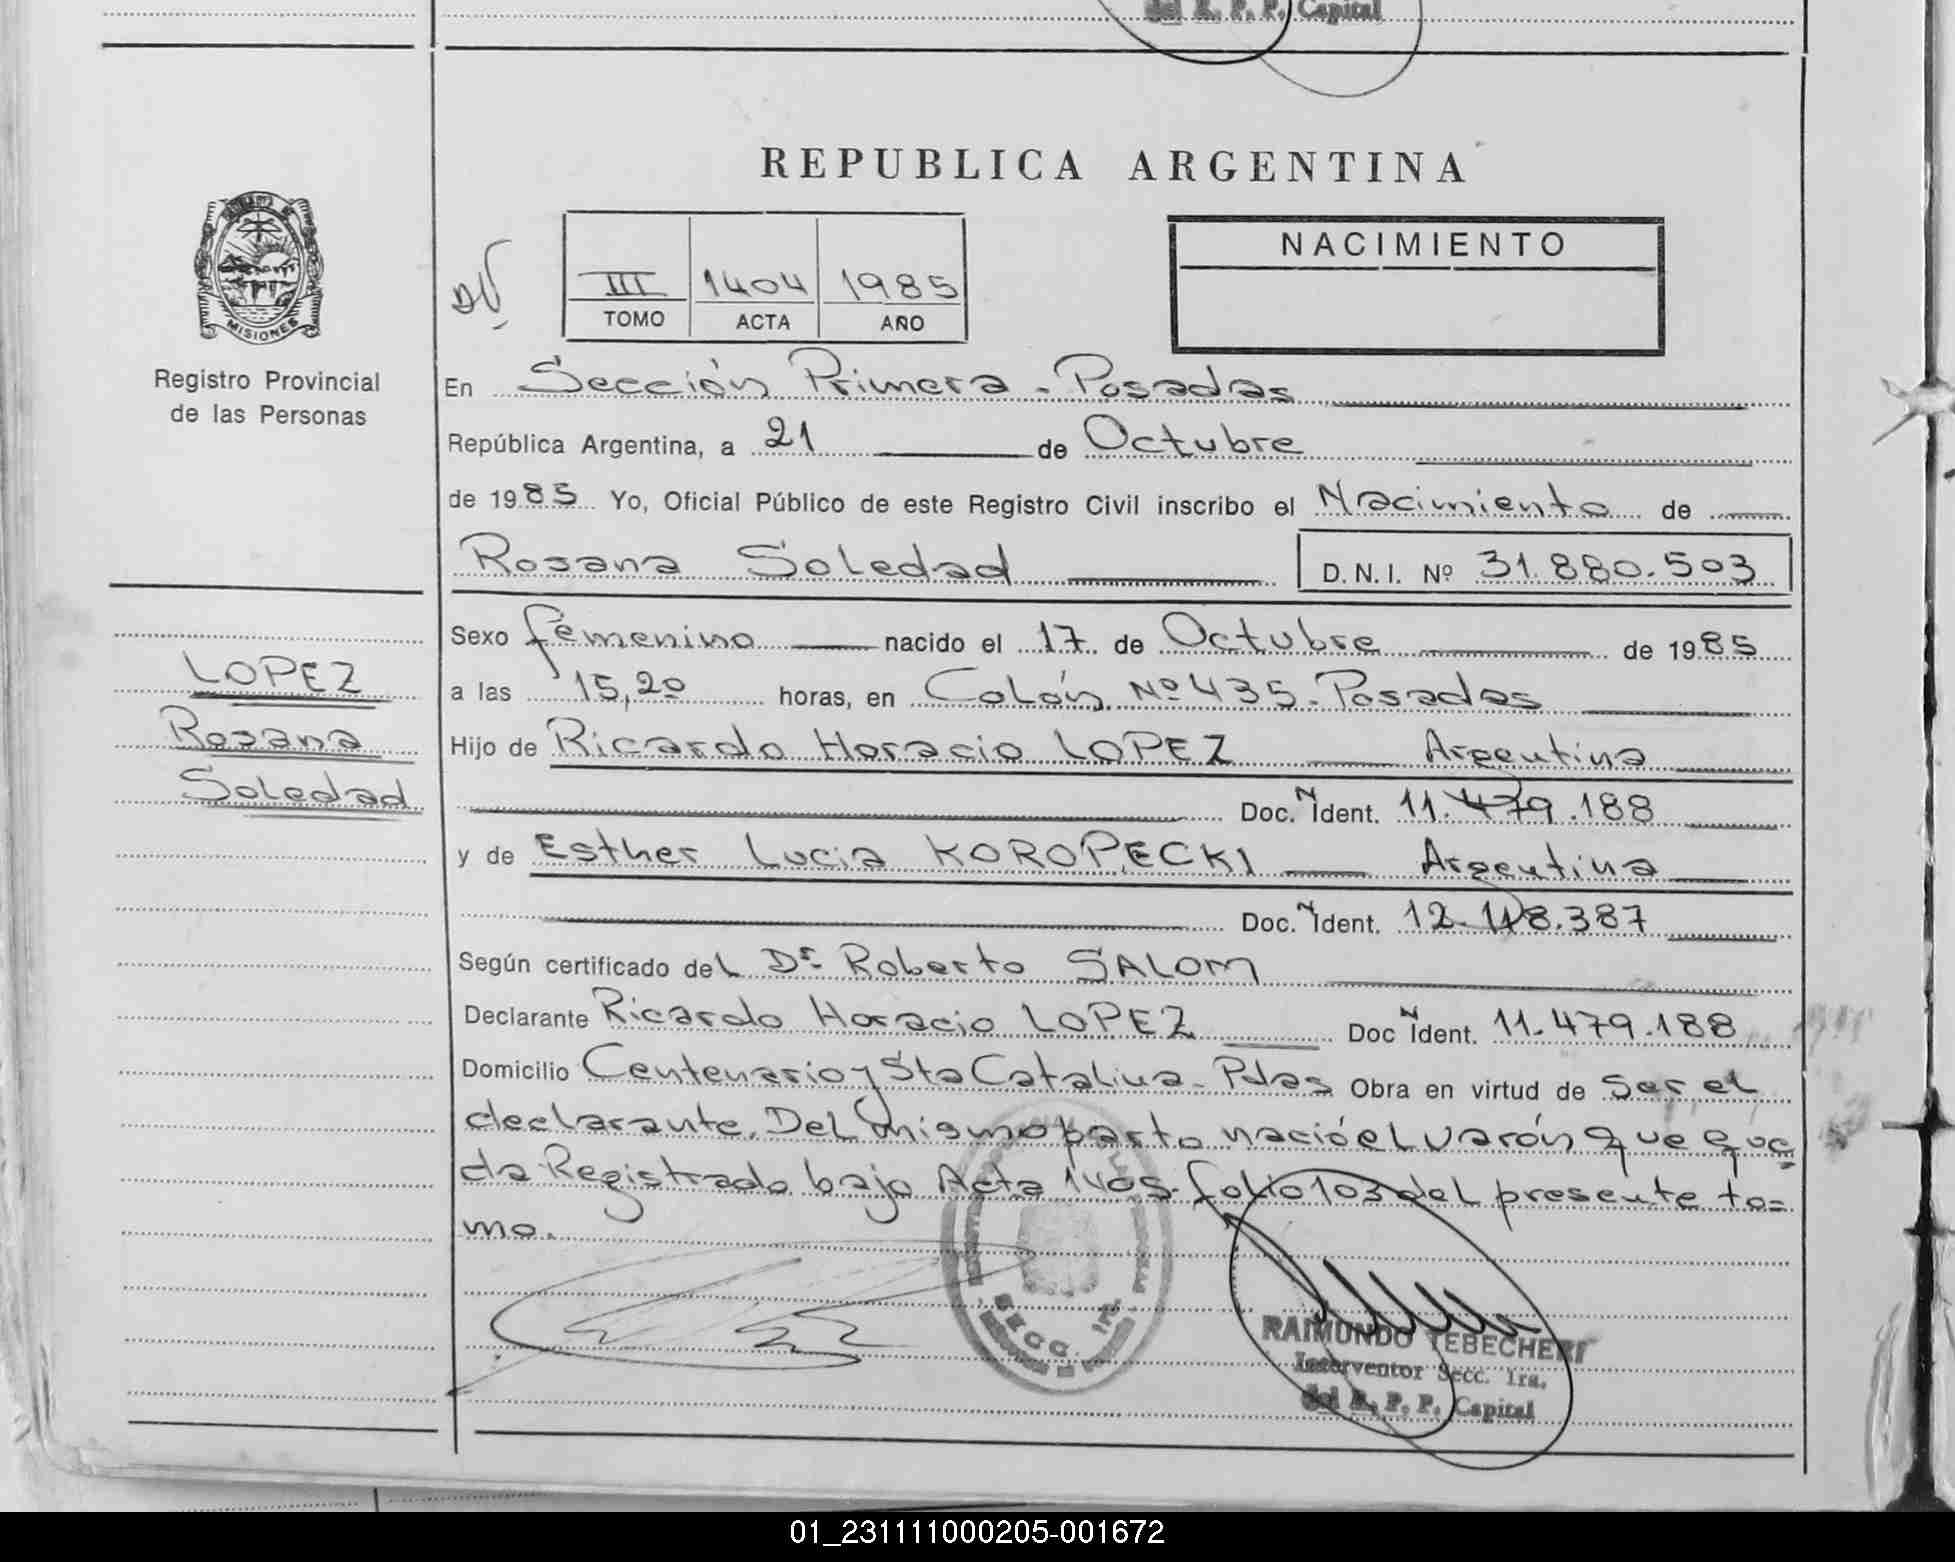 del R. P. P. Capital
REPUBLICA ARGENTINA
MISIONES
Registro Provincial
de las Personas
III 1404 1985
TOMO ACTA AÑO
NACIMIENTO
En Sección Primera - Posadas
República Argentina, a 21 de Octubre
de 1985 Yo, Oficial Público de este Registro Civil inscribo el Nacimiento de
Rosana Soledad D.N.I. Nº 31.880.503
Sexo femenino nacido el 17 de Octubre de 1985
LOPEZ
Rosana
Soledad
a las 15,20 horas, en Colón Nº 435 - Posadas
Hijo de Ricardo Horacio LOPEZ Argentina
Doc. N Ident. 11.479.188
y de Esther Lucia KOROPECKI Argentina
Doc. N Ident. 12.118.387
Según certificado del Dr Roberto SALOM
Declarante Ricardo Horacio LOPEZ Doc N Ident. 11.479.188
Domicilio Centenario y Sta Catalina - Pdas Obra en virtud de Ser el
declarante. Del mismo parto nació el varón que que
da Registrado bajo Acta 1405 - folio 103 del presente to=
mo.
SECC. 1ra.
RAIMUNDO TEBECHERI
Interventor Secc. 1ra.
del R. P. P. Capital
01_231111000205-001672